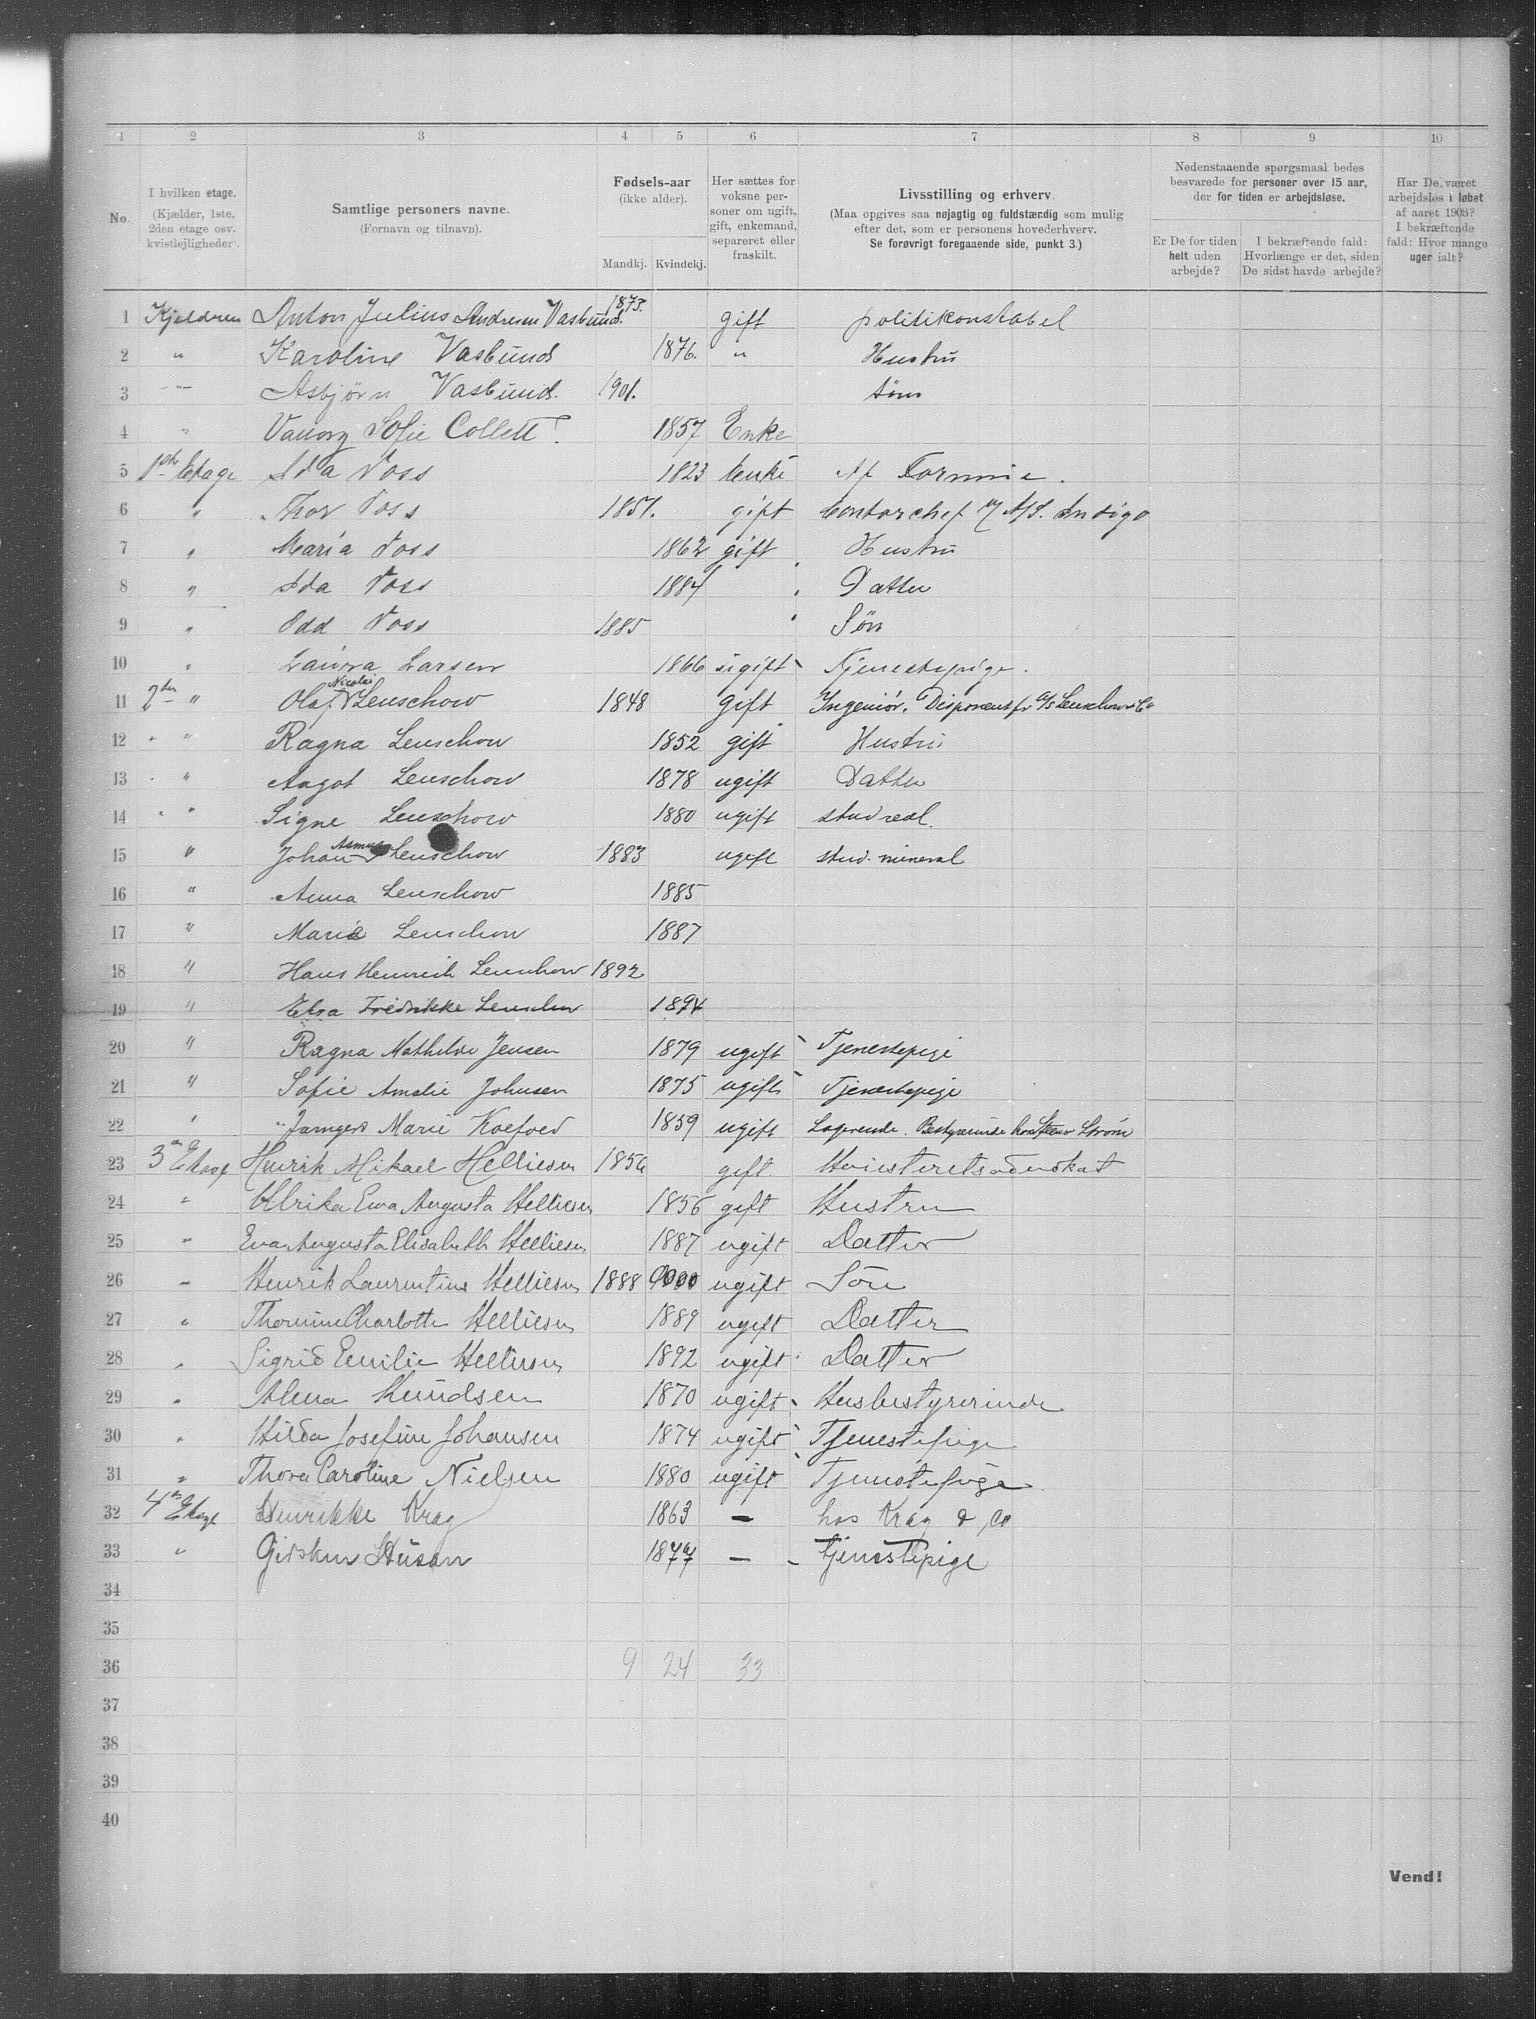 1 2 3 4 5 6 7 8 9 10
No. I hvilken etage. (Kjælder, 1ste, 2den etage osv. kvistlejligheder). Samtlige personers navne. (Fornavn og tilnavn). Fødsels-aar (ikke alder). Mandkj. Kvindekj. Her sættes for voksne personer om ugift, gift, enkemand, separeret eller fraskilt. Livsstilling og erhverv. (Maa opgives saa nøjagtig og fuldstændig som mulig efter det, som er personens hovederhverv. Se forøvrigt foregaaende side, punkt 3.) Nedenstaaende spørgsmaal bedes besvarede for personer over 15 aar, der for tiden er arbejdsløse. Er De for tiden helt uden arbejde? I bekræftende fald: Hvorlænge er det, siden De sidst havde arbejde? Har De været arbejdsløs i løbet af aaret 1903? I bekræftende fald: Hvor mange uger ialt?
1 Kjeldren Anton Julius Andresen Vasbund. 1873. gift politikonstabel
2 " Karoline Vasbund 1876. " Hustru
3 " Asbjørn Vasbund. 1901. søn
4 " Sofie Collett 1857 Enke
5 1ste Etage Ida Voss 1823 Enke Af Formue.
6 " Thor Voss 1851. gift Contorchef A/S. Indigo
7 " Maria Voss 1862 gift Hustru
8 " Ida Voss 1884 Datter
9 " Odd Voss 1885 Søn
10 " Laura Larsen 1866 ugift Tjenestepige.
11 2den " Olaf Nicolai Lenschow 1848 gift Ingeniør. Disponent f. A/S Lenschow & Co
12 " " Ragna Lenschow 1852 gift Hustru
13 " " Aagot Lenschow 1878 ugift Datter
14 " " Signe Lenschow 1880 ugift stud real.
15 " Johan Asmus Lenschow 1883 ugift stud. mineral
16 " Anna Lenschow 1885
17 " Marie Lenschow 1887
18 " Hans Henrich Lenschow 1892
19 " Elsa Fredrikke Lenschow 1894
20 " Ragna Mathilde Jensen 1879 ugift Tjenestepige
21 " Sofie Amalie Johnsen 1875 ugift Tjenestepige
22 " Marie Koefoed 1859 ugift Logerende. Bestyrerinde hos Steen & Strøm
23 3die Etage Henrik Mikael Helliesen 1856 gift Høiesteretsadvokat
24 " Ulrika Eva Augusta Helliesen 1856 gift Hustru
25 " Eva Augusta Elisabeth Helliesen 1887 ugift Datter
26 " Henrik Laurentius Helliesen 1888 ugift Søn
27 " Charlotte Helliesen 1889 ugift Datter
28 " Sigrid Emilie Helliesen 1892 ugift Datter
29 " Alma Knudsen 1870 ugift Husbestyrerinde
30 " Hilda Josefine Johansen 1874 ugift Tjenestepige
31 " Thora Caroline Nielsen 1880 ugift Tjenestepige
32 4de Etage Henrikke Krag 1863 — hos Krag & Co
33 " 1877 — tjenestepige
34
35
36 9 24 33
37
38
39
40
Vend!